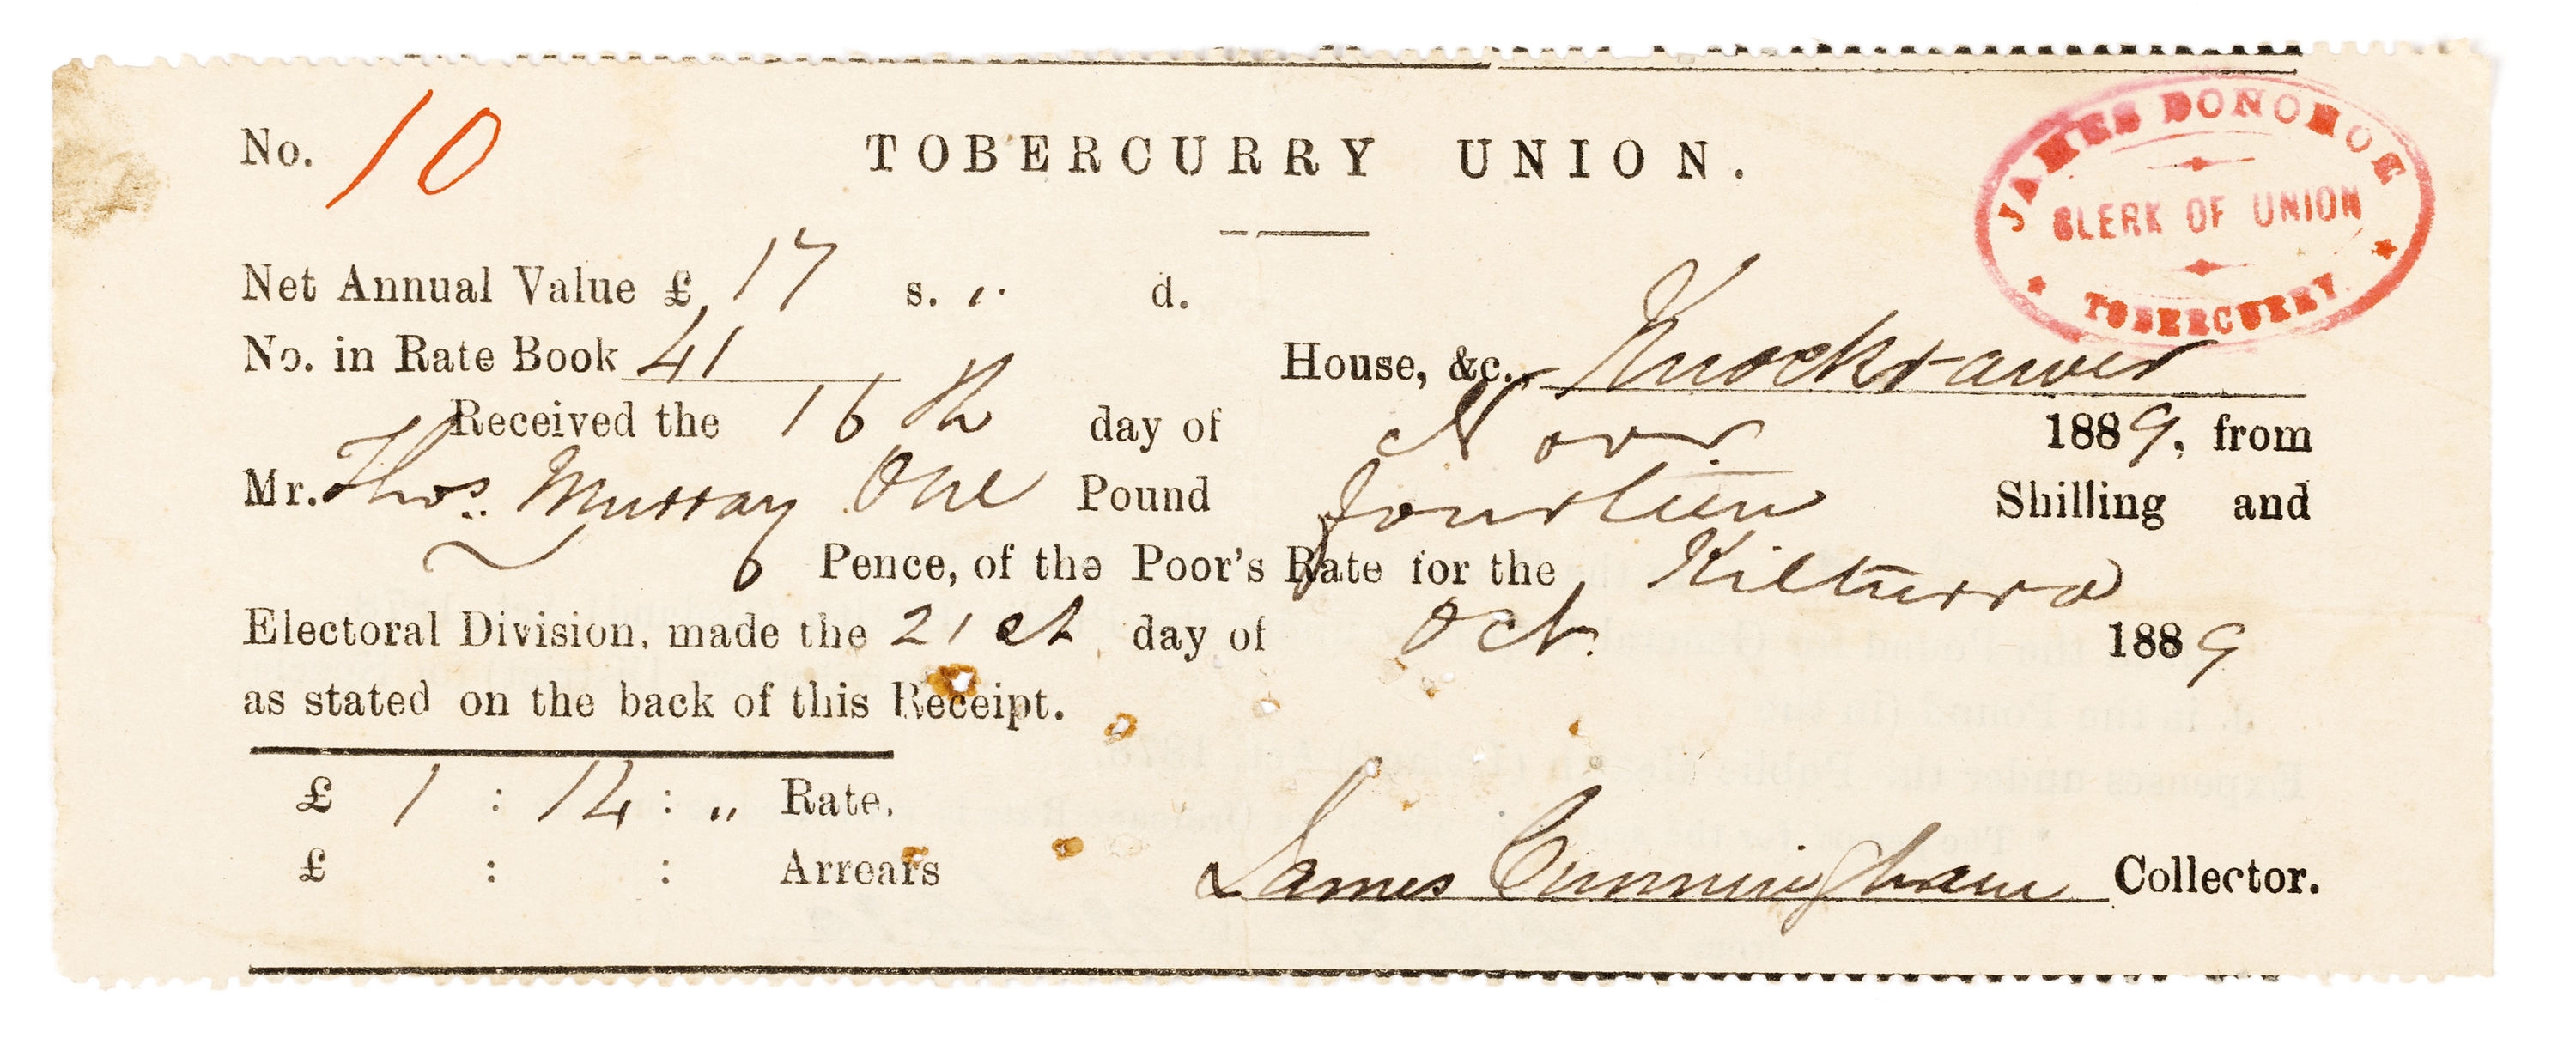 No. 10 TOBERCURRY UNION.
JAMES DONOHOE
CLERK OF UNION
TOBERCURRY
Net Annual Value £ 17 s. " d.
No. in Rate Book 41 House, &c., Knockrawer
Received the 16th day of Novr. 1889, from
Mr. Thos. Murray One Pound fourteen Shilling and
Pence, of the Poor's Rate for the Kilturra
Electoral Division, made the 21st day of Oct. 1889
as stated on the back of this Receipt.
£ 1 : 14 : " Rate.
£ : : Arrears
James Cunningham Collector.